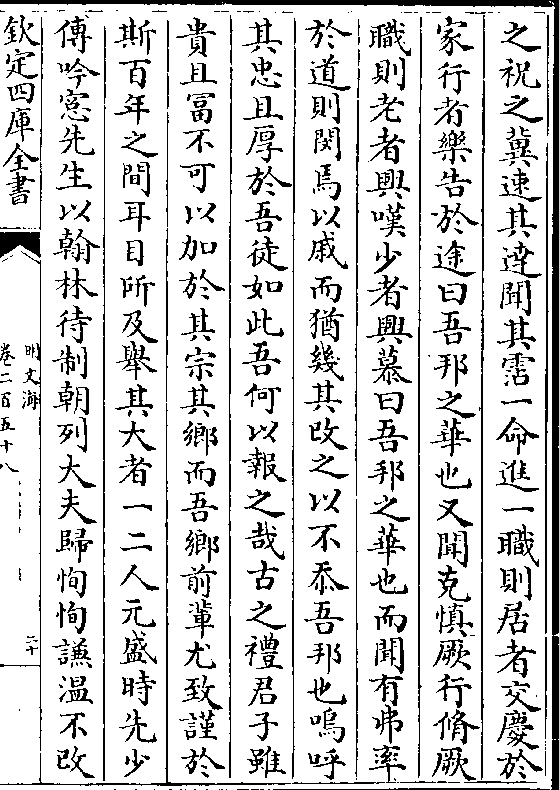 之祝之冀速其達聞其霑一命進一職則居者交慶於
家行者樂告於途曰吾邦之華也又聞克慎厥行脩厥
職則老者興嘆少者興慕曰吾邦之華也而聞有弗率
於道則閔焉以戚而猶幾其改之以不忝吾邦也嗚呼
其忠且厚於吾徒如此吾何以報之哉古之禮君子雖
貴且冨不可以加於其宗其鄉而吾鄉前輩尤致謹於
斯百年之間耳目所及舉其大者一二人元盛時先少
傅吟窻先生以翰林待制朝列大夫歸恂恂謙温不改
欽定四庫全書
明文海
卷二百五十八
二十